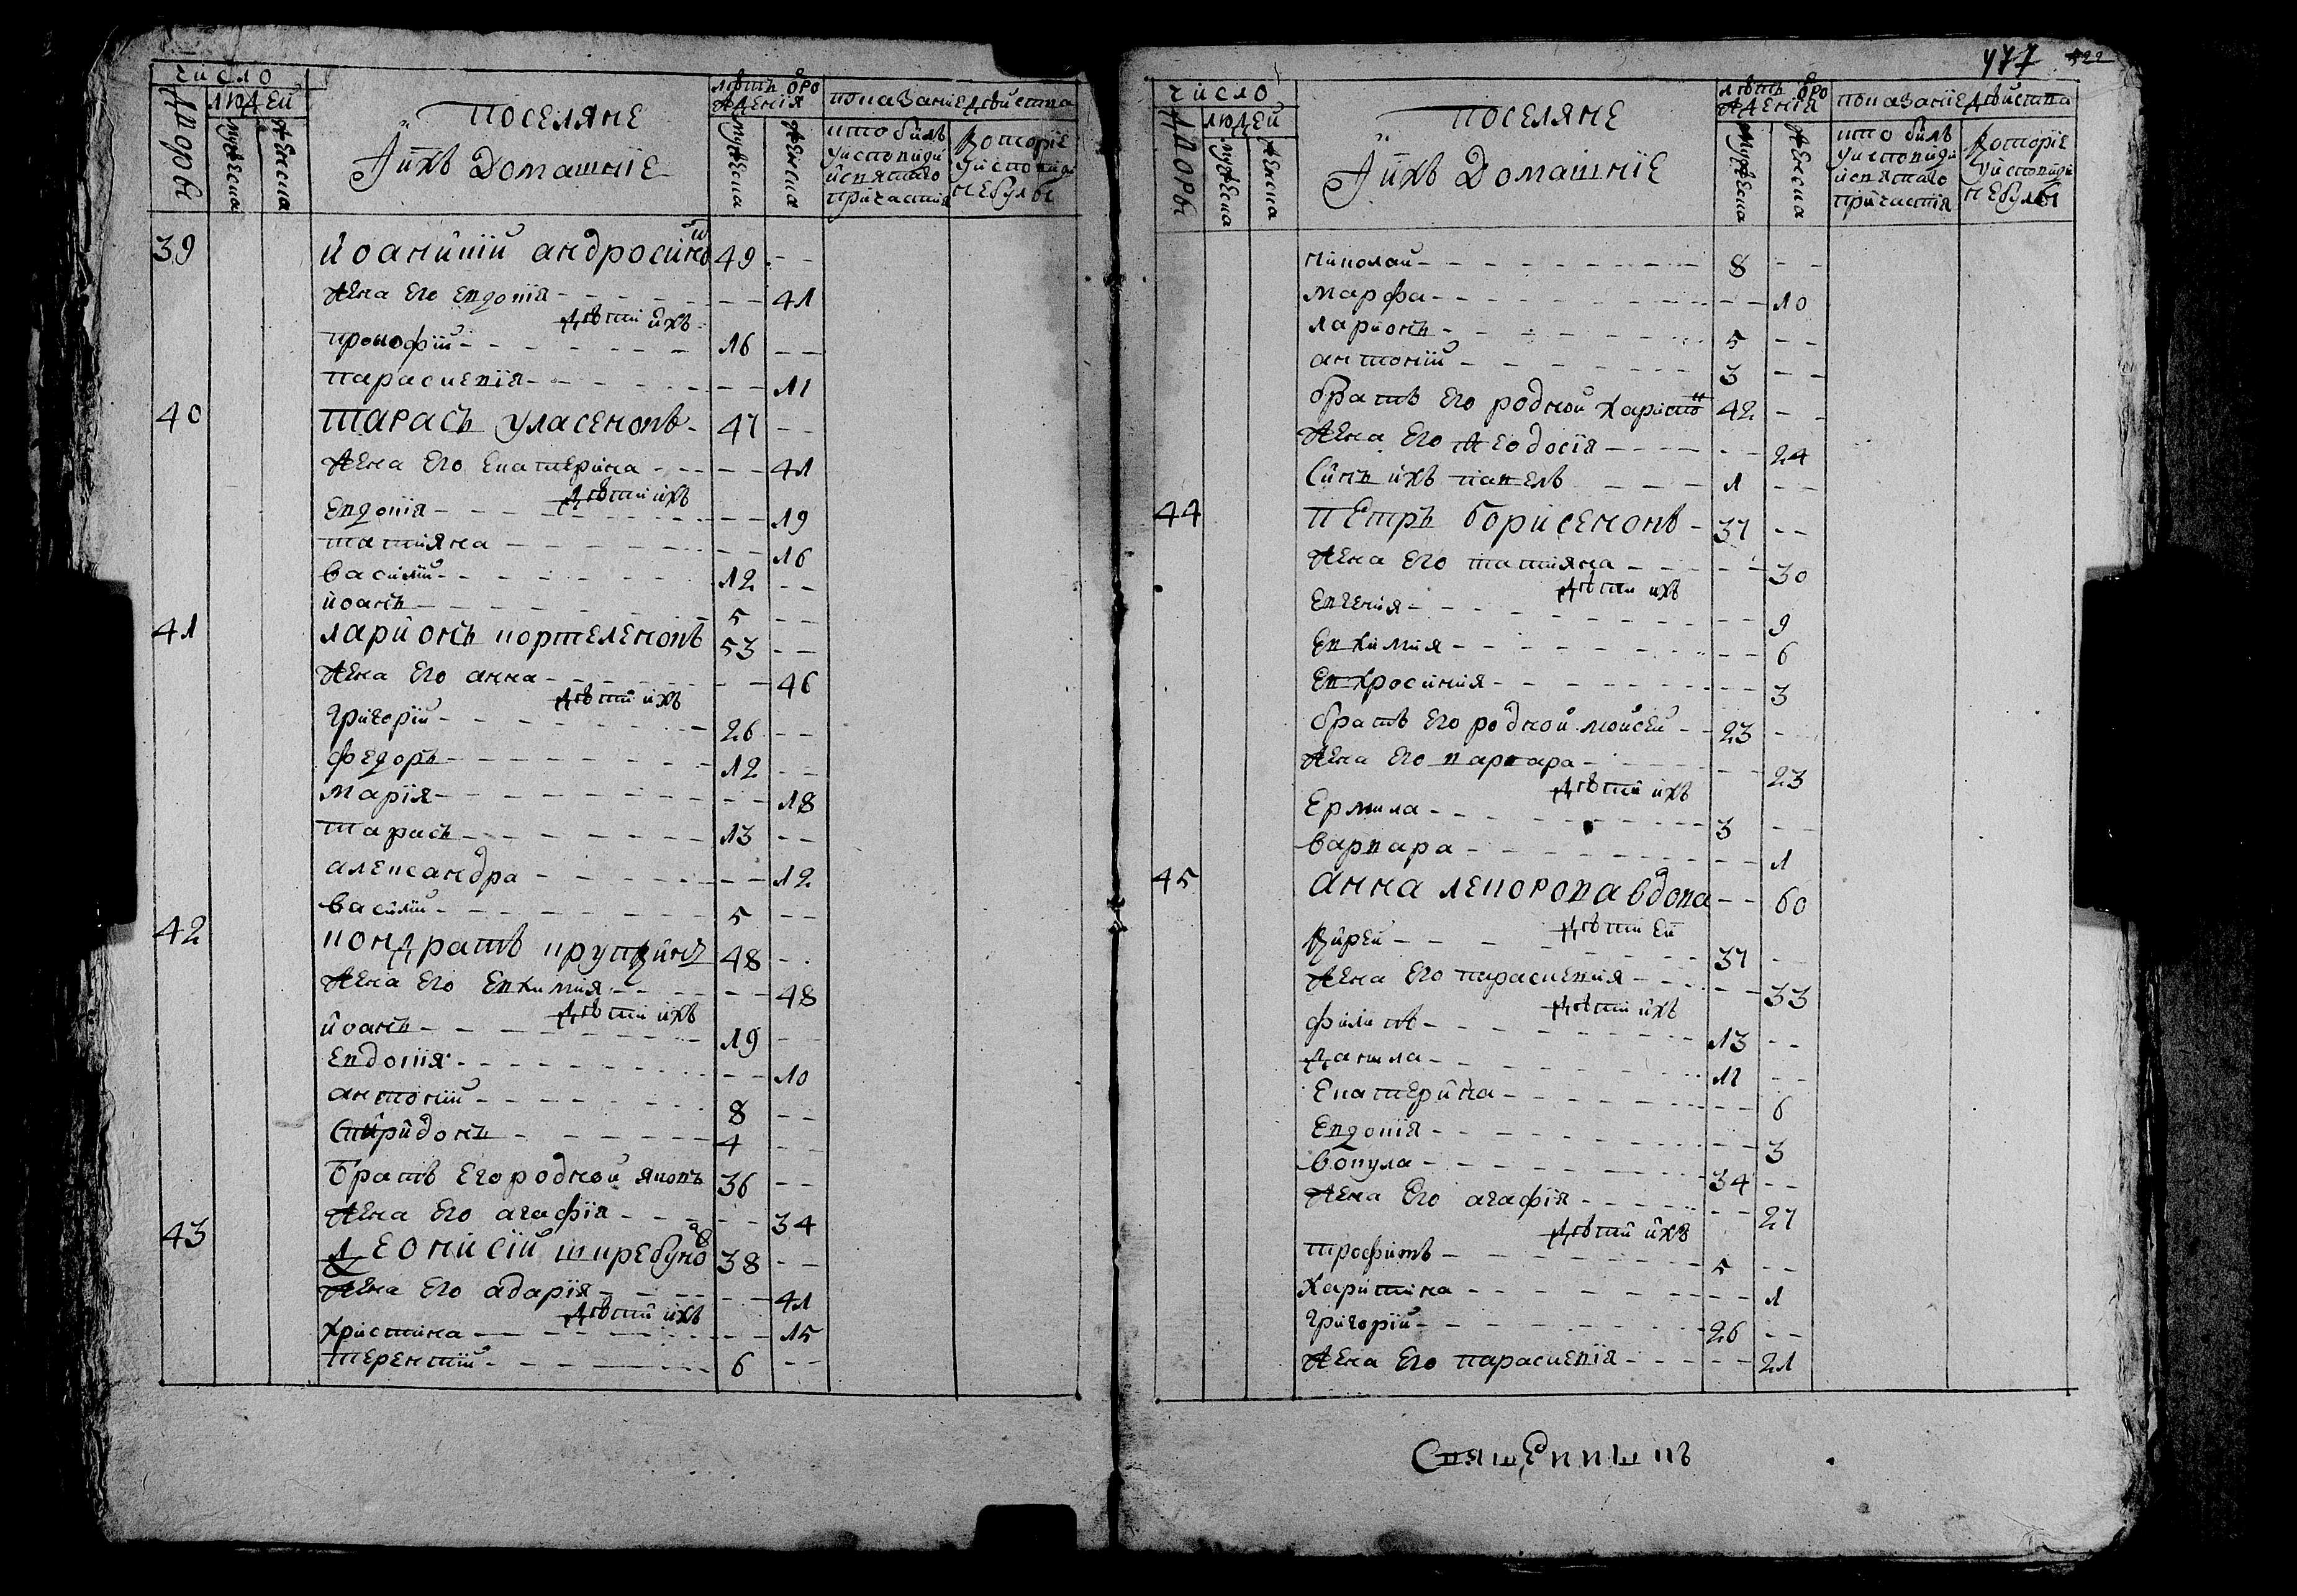 число
людей
дворы
мужеска
женска
поселяне
и ихъ домашнiе
лѣтъ ѿ рождения
мужеска
женска
показанiе дѣйства
кто былъ у исповѣди и святаго причастiя
которiе у исповѣди не булы
39 иоаникiй андросинко 49 - -
жена его евдокiя - - 41
дѣти ихъ
прокофiй - 16 - -
параскевiя - - - 11
40 тарасъ уласенокъ - 47 - -
жена его екатерiна - - - 41
дѣти ихъ
евдокiя - - - 19
татияна - - - 16
василiй - 12 - -
иоанъ - 5 - -
41 ларионъ кортеленокъ 53 - -
жена его анна - - - 46
дѣти ихъ
григорiй - 26 - -
федоръ - 12 - -
марiя - - - 18
тарасъ - 13 - -
александра - - - 12
василiй - 5 - -
42 кондратъ крупкинъ 48 - -
жена его евхимiя - - - 48
дѣти ихъ
иоанъ - 19 - -
евдокiя - - - 10
антонiй - 8 - -
спиридонъ - 4 - -
братъ его родной яковъ 36 - -
жена его агафiя - - - 34
43 деонисiй
38 - -
жена его одарiя - - - 41
дѣти ихъ
христина - - - 15
терентiй - 6 - -
477 522
число
людей
дворы
мужеска
женска
поселяне
и ихъ домашнiе
лѣтъ ѿ рождения
мужеска
женска
показанiе дѣйства
кто былъ у исповѣди и святаго причастiя
которiе у исповѣди не булы
николай - 8 - -
марфа - - - 10
ларионъ - 5 - -
антонiй - 3 - -
братъ его родной харитон 42 - -
жена его феодосiя - - - 24
синъ ихъ павелъ - 1 - -
44 петръ борисенокъ - 37 - -
жена его татияна - - - 30
дѣти ихъ
евгения - - - 9
евхимия - - - 6
евхросиния - - - 3
братъ его родной мойсей - 23 -
жена его варвара - - - 23
дѣти ихъ
ермила - 3 - -
варвара - - - 1
45 анна лекорова вдова - - 60
дѣти еи
кирей - 37 - -
жена его параскевия - - - 33
дѣти ихъ
филипъ - 13 - -
данила - 11 - -
екатерина - - - 6
евдокiя - - - 3
вокула - 34 - -
жена его агафiя - - - 27
дѣти ихъ
трофимъ - 5 - -
харитина - - - 1
григорiй - 26 - -
жена его параскевiя - - - 21
священникъ